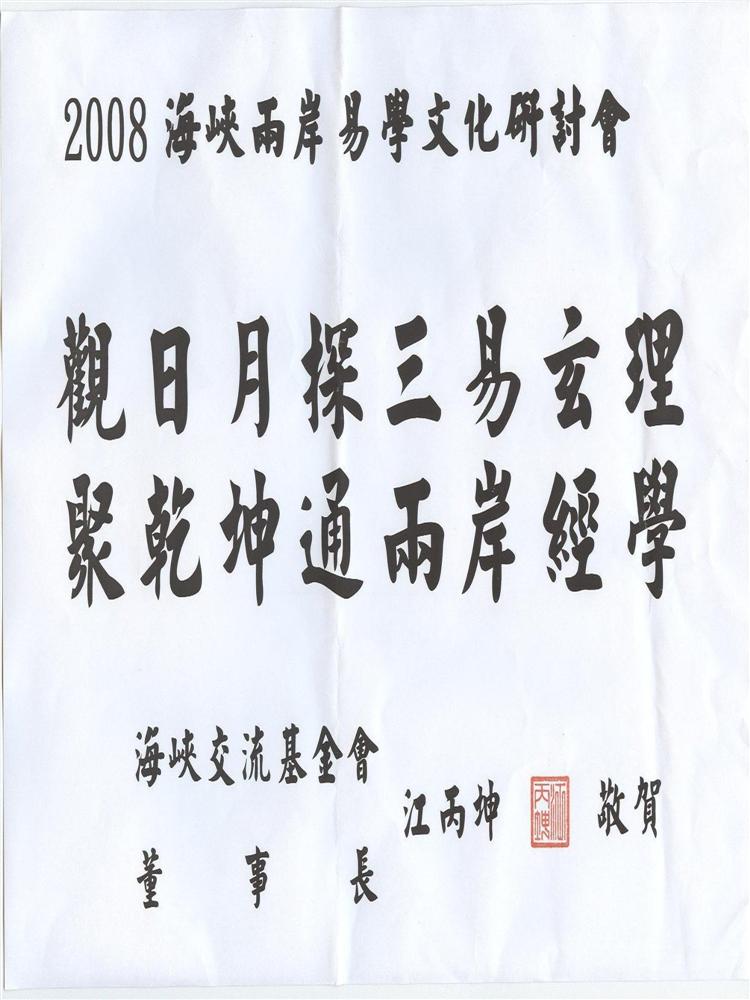 2008海峽兩岸易學文化研討會
觀日月探三易玄理
聚乾坤通兩岸經學
海峽交流基金會
董事長
江丙坤
江丙坤
敬賀